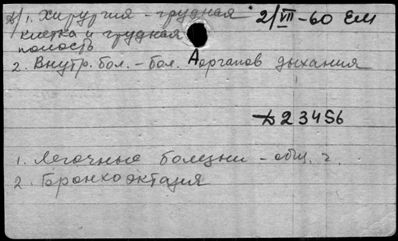 А/ 1. Хирургия - грудная
клетка и грудная
полость
2/VII-60 ЕМ
2. Внутр. бол. - бол. органов дыхания
Д23456
1. Легочные болезни - общ. ч.
2. Бронхоэктазия